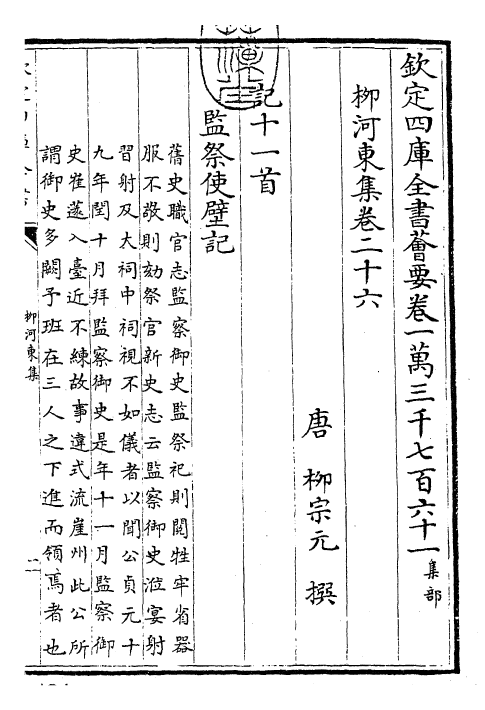 欽定四庫全書薈要卷一萬三千七百六十一 集部
柳河東集卷二十六
唐 柳宗元 撰
記十一首
監祭使壁記
舊史職官志監察御史監祭祀則閱牲牢省器
服不敬則劾祭官新史志云監察御史涖宴射
習射及大祠中祠視不如儀者以聞公貞元十
九年閏十月拜監察御史是年十一月監察御
史崔薳入臺近不練故事違式流崖州此公所
謂御史多闕予班在三人之下進而領焉者也
柳河東集